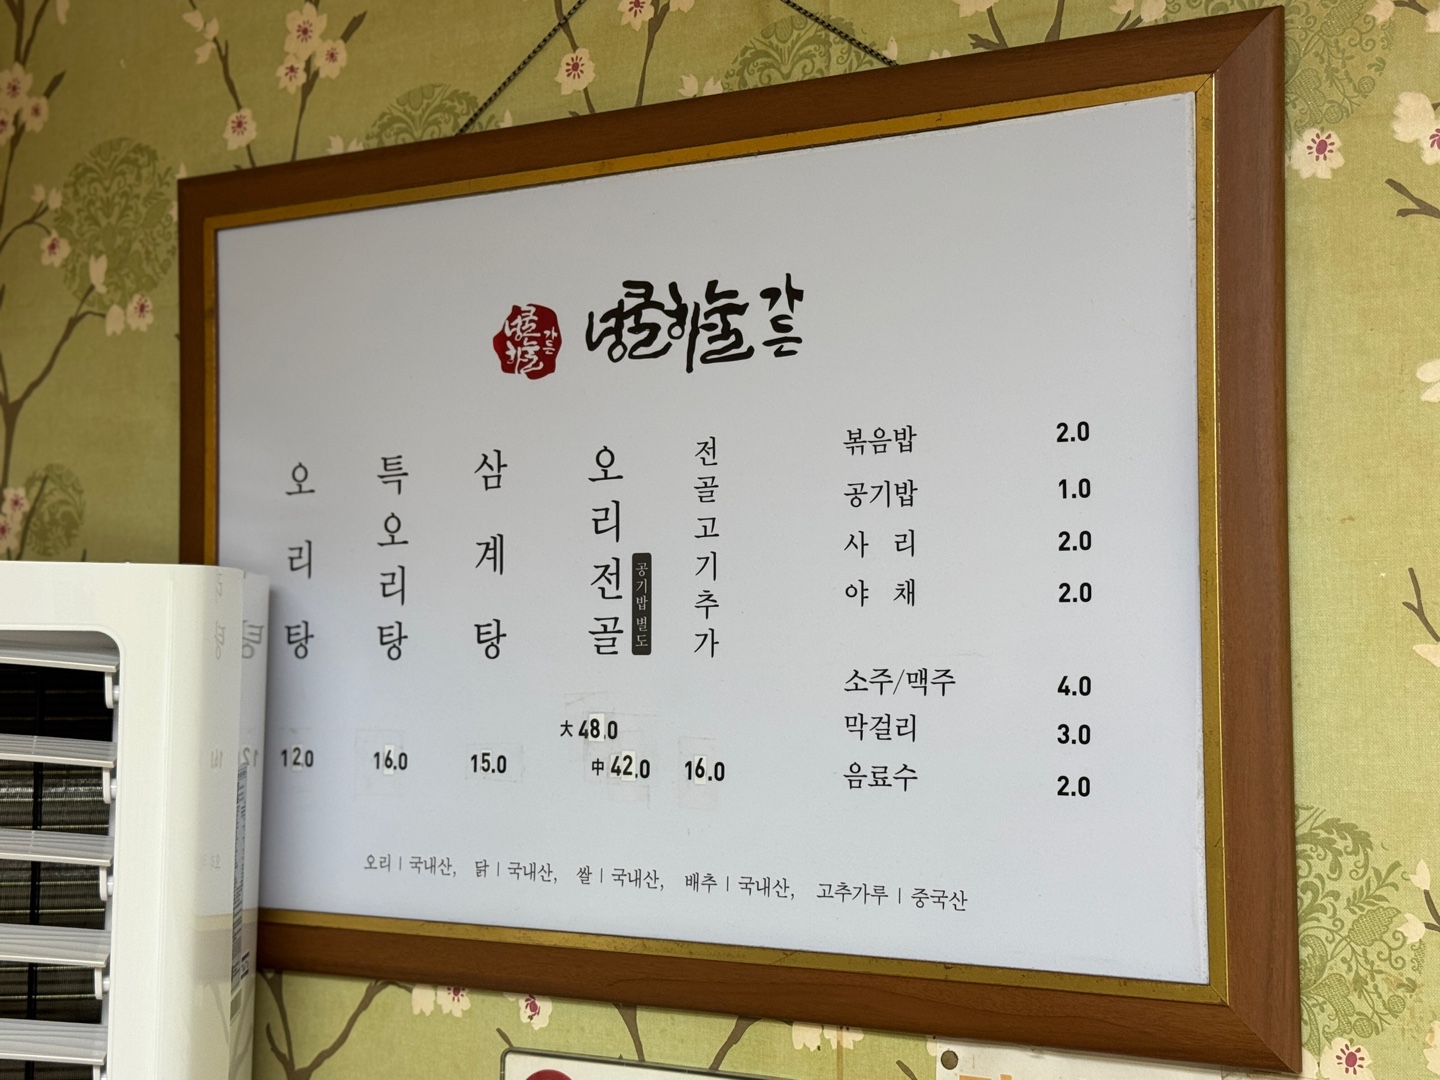 넝쿨하늘가든
넝쿨하늘가든
오리탕
12.0
특오리탕
16.0
삼계탕
15.0
오리전골
공기밥 별도
大 48.0
中 42.0
전골고기추가
16.0
볶음밥 2.0
공기밥 1.0
사 리 2.0
야 채 2.0
소주/맥주 4.0
막걸리 3.0
음료수 2.0
오리 | 국내산, 닭 | 국내산, 쌀 | 국내산, 배추 | 국내산, 고추가루 | 중국산